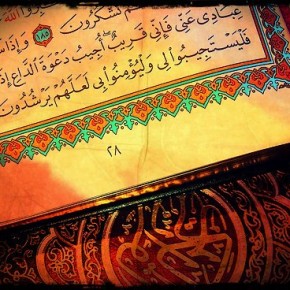 تَشْكُرُونَ ١٨٥ وَإِذَا
عِبَادِى عَنِّى فَإِنِّى قَرِيبٌ أُجِيبُ دَعْوَةَ ٱلدَّاعِ
فَلْيَسْتَجِيبُوا۟ لِى وَلْيُؤْمِنُوا۟ بِى لَعَلَّهُمْ يَرْشُدُونَ
٢٨